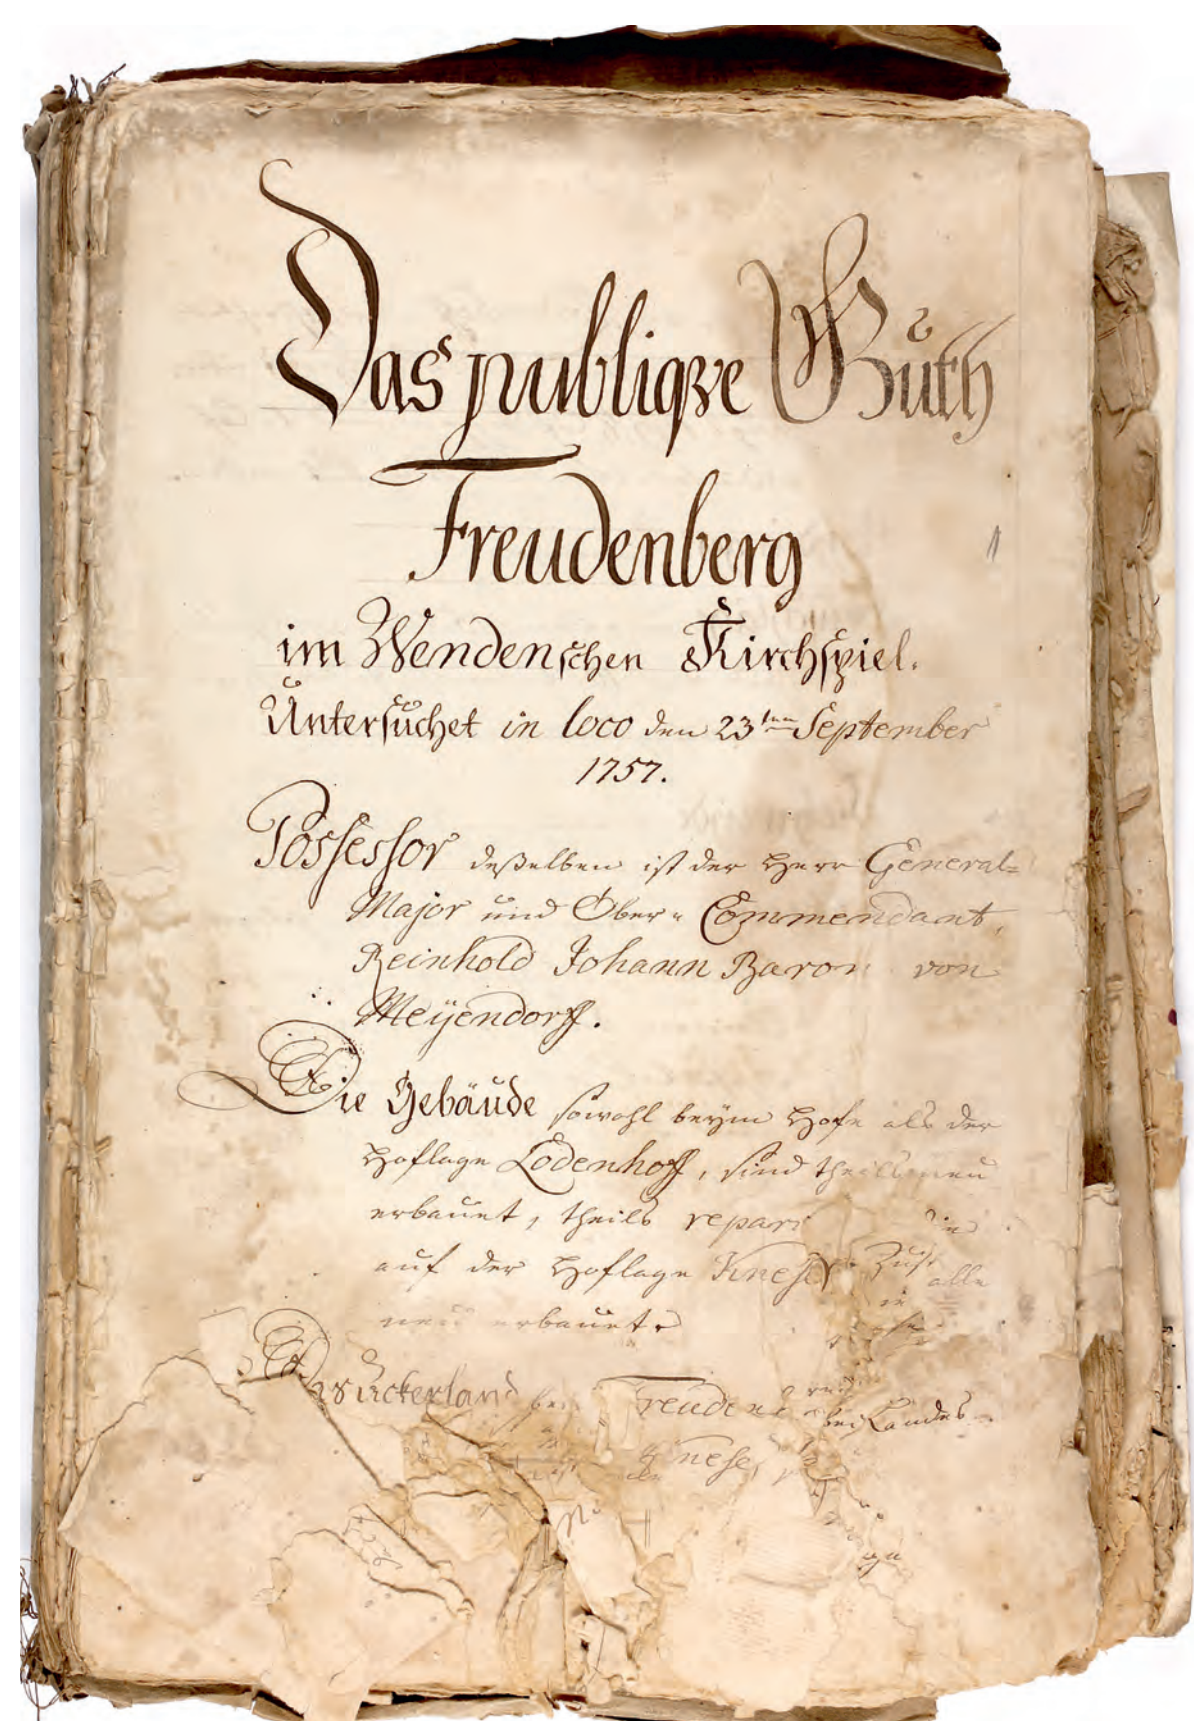 Das publiqve Guth
Freudenberg
im Wendenschen Kirchspiel.
Untersuchet in loco den 23ten September
1757.
Possessor deßelben ist der Herr General-
Major und Ober-Commendant,
Reinhold Johann Baron von
Meÿendorff.
Die Gebäude sowohl beym Hofe als der
Hoflage Lodenhoff, sind theils neu
erbauet, theils repari
auf der Hoflage alle
neu erbauet.
Das Ackerland
Landes